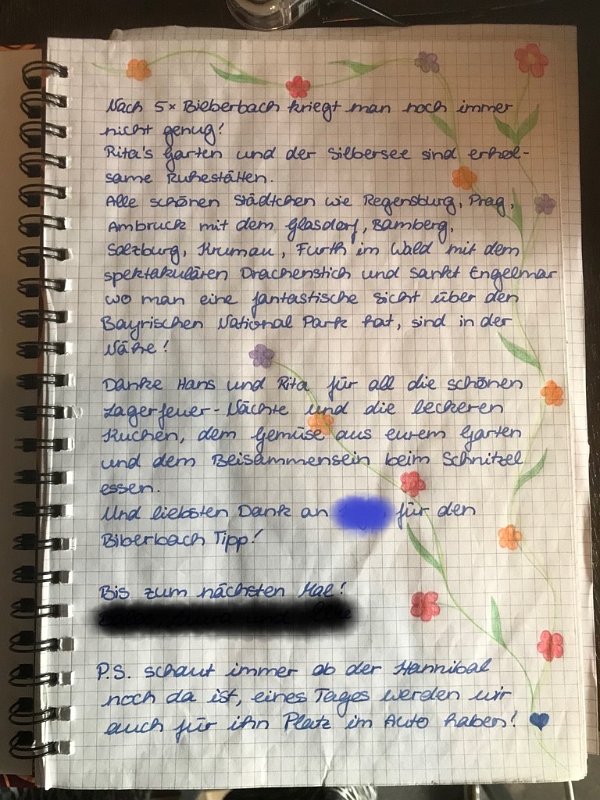 Nach 5x Bieberbach kriegt man noch immer
nicht genug!
Rita's Garten und der Silbersee sind erhol-
same Ruhestätten.
Alle schönen Städtchen wie Regensburg, Prag,
Ambruck mit dem Glasdorf, Bamberg,
Salzburg, Krumau, Furth im Wald mit dem
spektakulären Drachenstich und Sankt Engelmar
wo man eine fantastische Sicht über den
Bayrischen National Park hat, sind in der
Nähe!
Danke Hans und Rita für all die schönen
Lagerfeuer-Nächte und die leckeren
Kuchen, dem Gemüse aus eurem Garten
und dem Beisammensein beim Schnitzel
essen.
Und liebsten Dank an für den
Biberbach Tipp!
Bis zum nächsten Mal!
P.S. schaut immer ob der Hannibal
noch da ist, eines Tages werden wir
auch für ihn Platz im Auto haben!